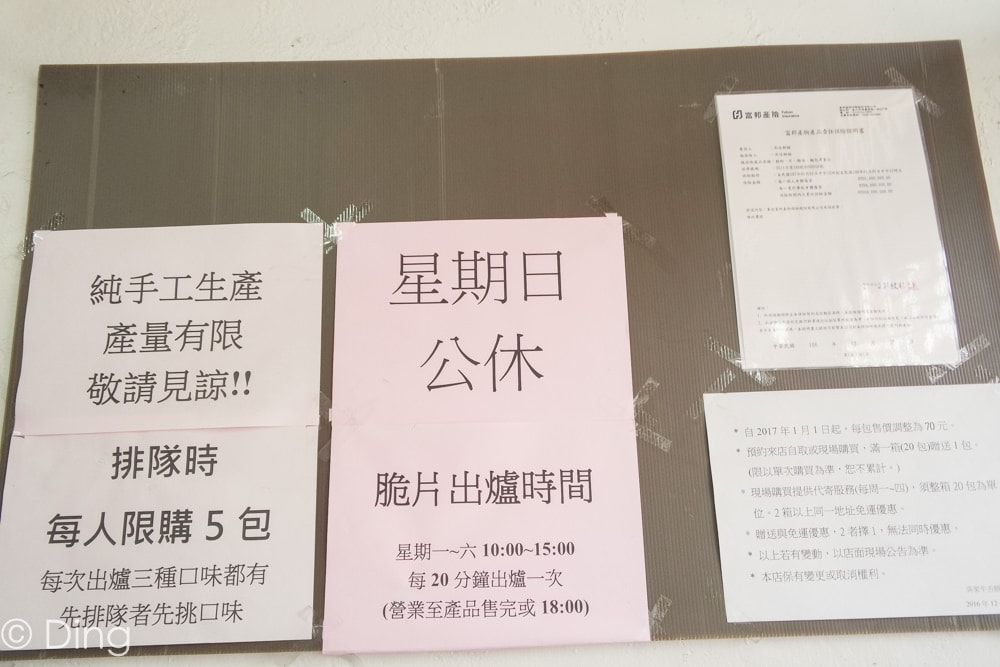 純手工生產
產量有限
敬請見諒!!
排隊時
每人限購 5 包
每次出爐三種口味都有
先排隊者先挑口味
星期日
公休
脆片出爐時間
星期一~六 10:00~15:00
每 20 分鐘出爐一次
(營業至產品售完或 18:00)
富邦產險
Fubon Insurance
富邦產物產品責任保險證明書
* 自 2017 年 1 月 1 日起，每包售價調整為 70 元。
* 預約來店自取或現場購買，滿一箱(20 包)贈送 1 包。
(限以單次購買為準，恕不累計。)
* 現場購買提供代寄服務(每周一~四)，須整箱 20 包為單
位。2 箱以上同一地址免運優惠。
* 贈送與免運優惠，2 者擇 1，無法同時優惠。
* 以上若有變動，以店面現場公告為準。
* 本店保有變更或取消權利。
2016 年 12
© Ding